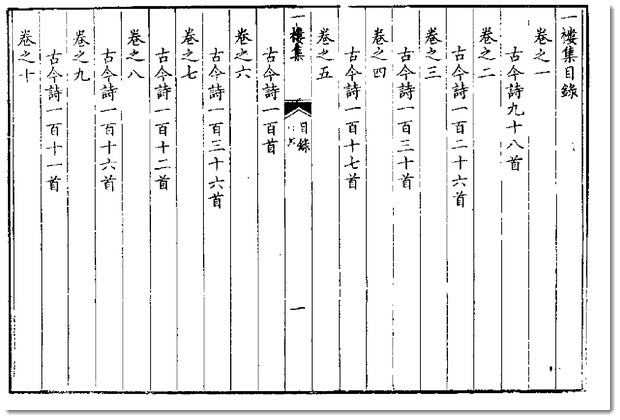 一樓集目錄
卷之一
古今詩九十八首
卷之二
古今詩一百二十六首
卷之三
古今詩一百三十首
卷之四
古今詩一百十七首
卷之五
一樓集
目錄
一
古今詩一百首
卷之六
古今詩一百三十六首
卷之七
古今詩一百十二首
卷之八
古今詩一百十六首
卷之九
古今詩一百十一首
卷之十